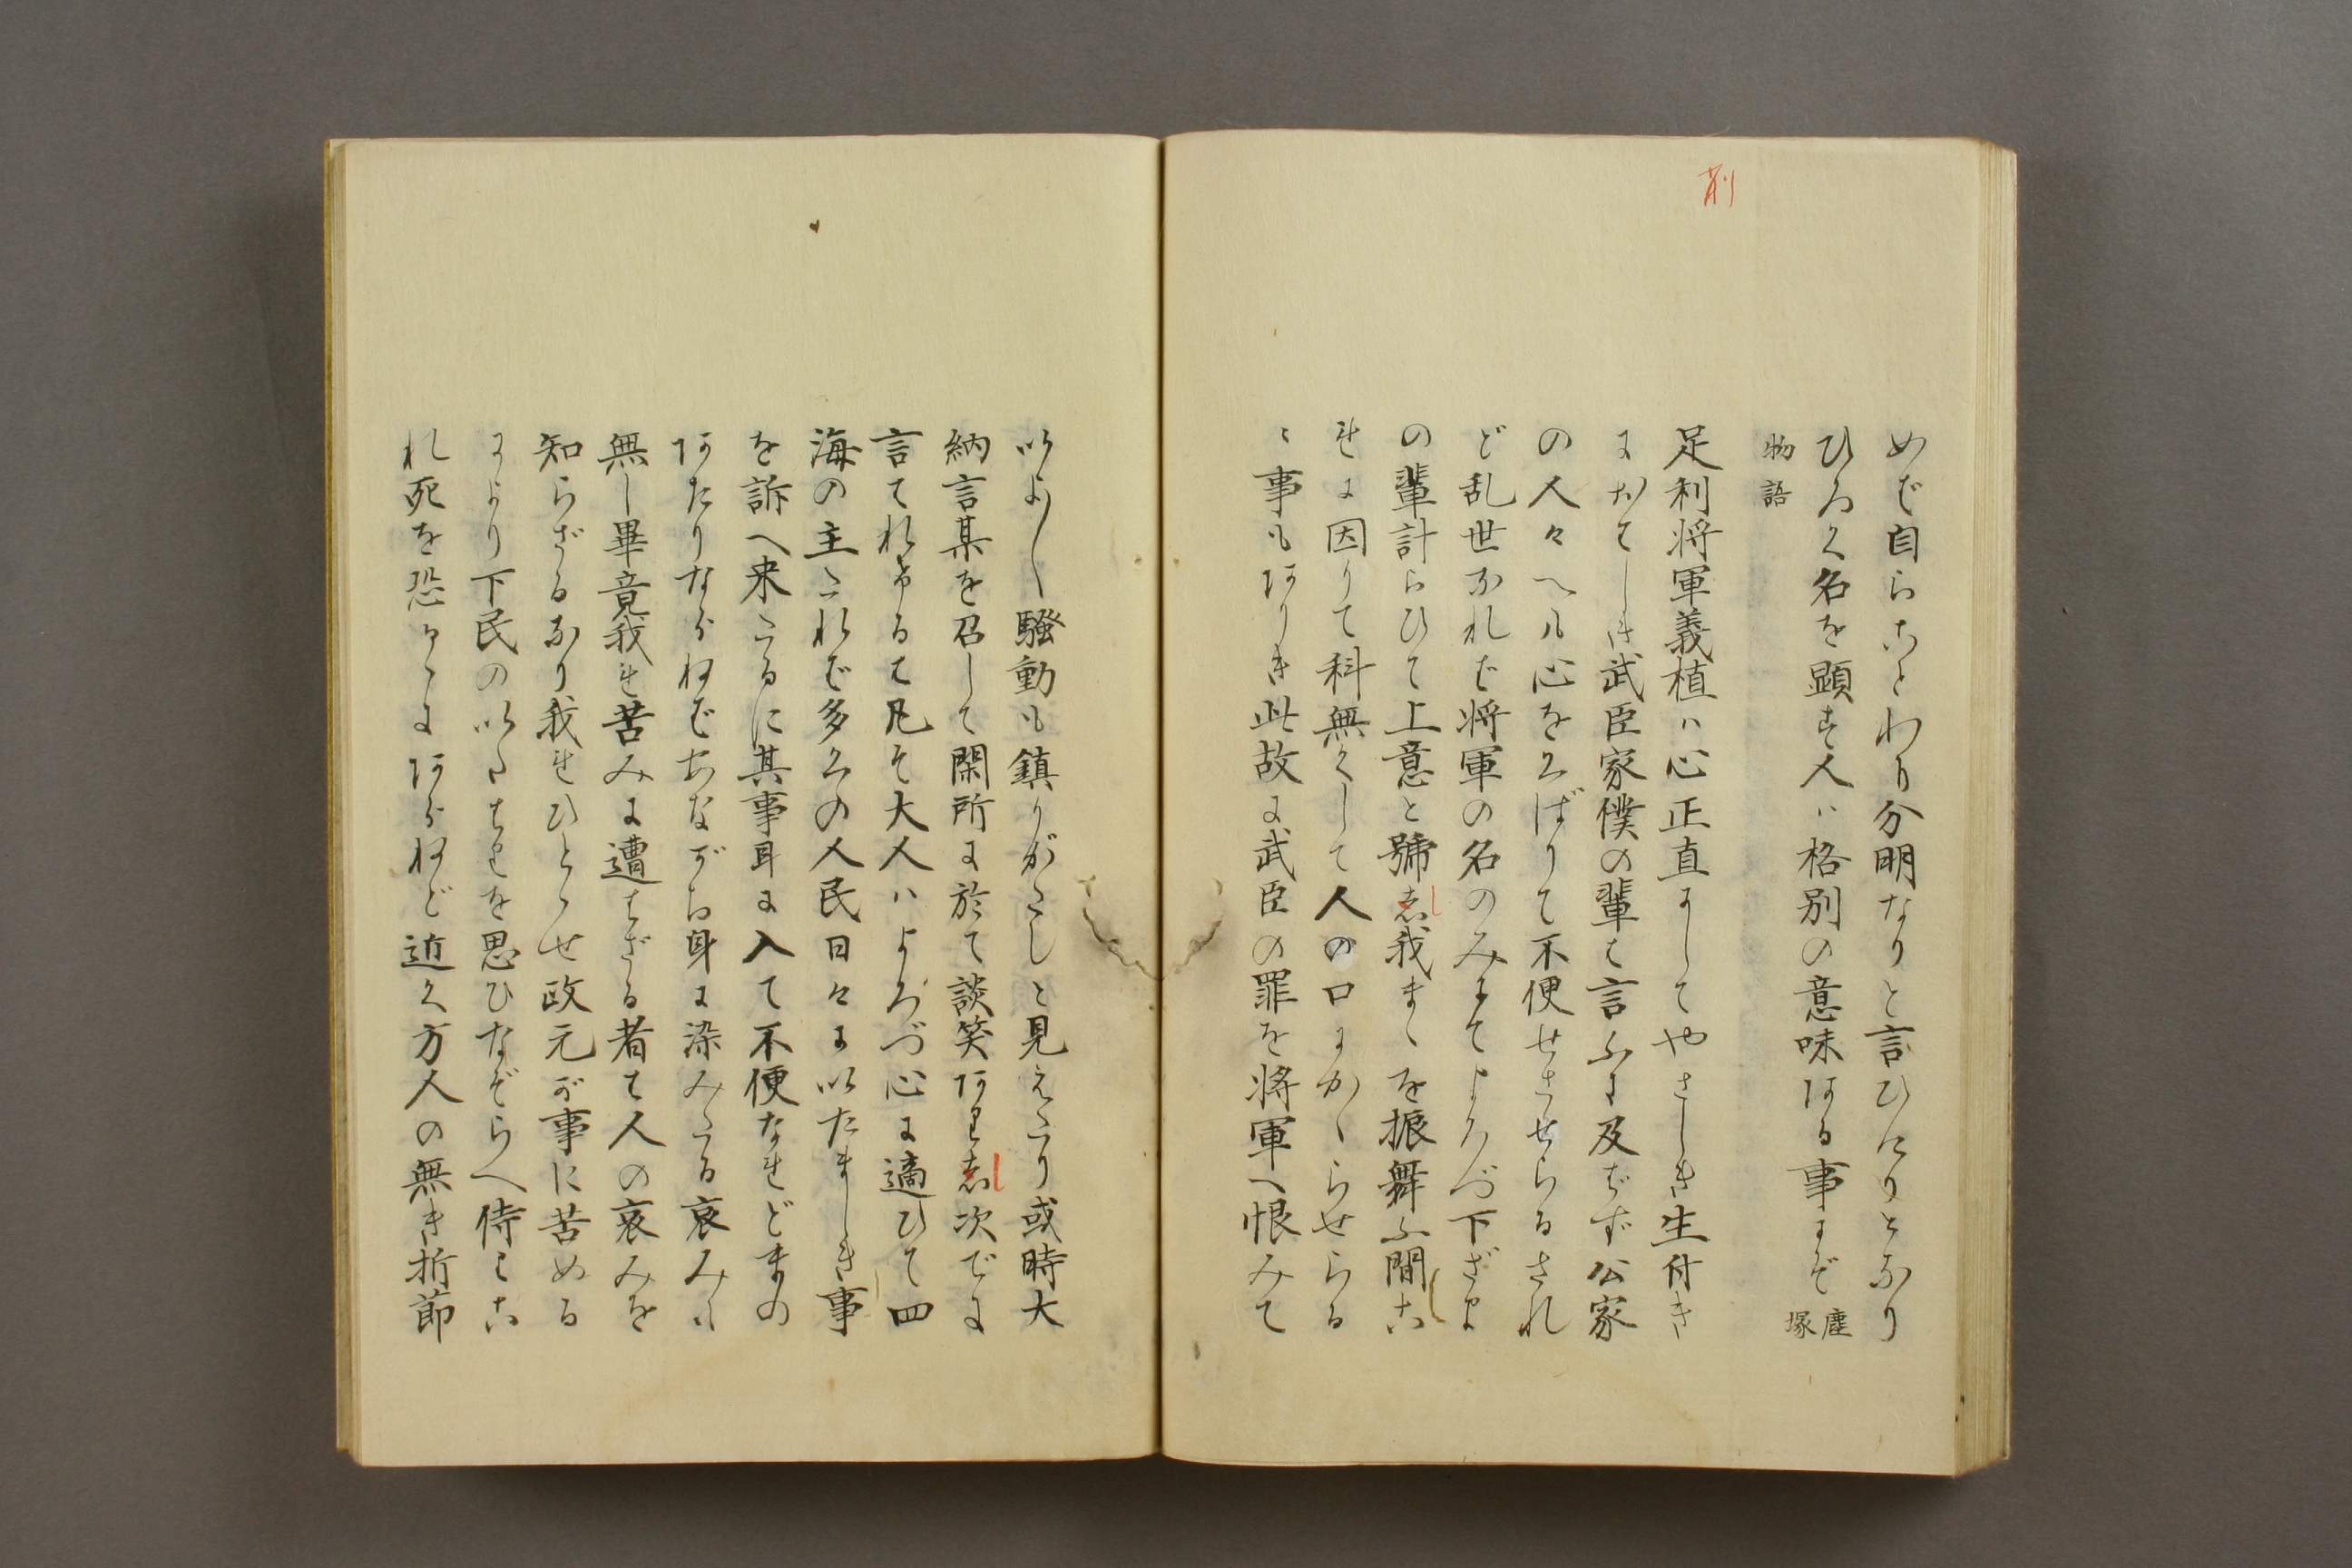 削
めバ自らことわり分明なりと言ひにりとなり
ひろく名を顕す人ハ格別の意味ある事にぞ 塵塚
物語
足利将軍義植ハ心正直にしてやさしき生付き
におてしき武臣家僕の輩は言ふに及ばず公家
の人々へも心をくばりて不便せさせらるされ
ど乱世なれば将軍の名のみにてよろづ下ざま
の輩計らひて上意と號し我まゝを振舞ふ間こ
れに因りて科無くして人の口にかゝらせらる
ゝ事もありき此故に武臣の罪を将軍へ恨みて
いよ〳〵騒動も鎮りがたしと見えたり或時大
納言某を召して閑所に於て談笑ありし次でに
言はれけるは凡そ大人ハよろづ心に適ひて四
海の主たれば多くの人民日々にいたましき事
を訴へ来たるに其事耳に入て不便なれどまの
あたりならねばあながち身に染みたる哀みハ
無し畢竟我れ苦みに遭はざる者は人の哀みを
知らざるなり我れひとゝせ政元が事に苦める
により下民のいたはりを思ひなぞらへ侍ここ
れ死を恐るゝにあらねど近く方人の無き折節